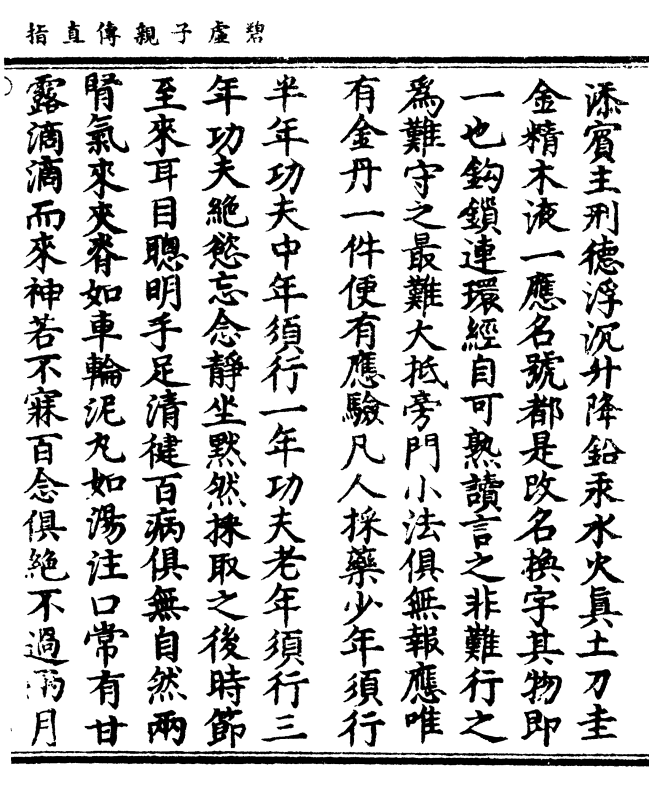 碧虛子親傳直指
添賓主刑德浮沉升降鉛汞水火眞土刀圭
金精木液一應名號都是改名換字其物即
一也鈎鎖連環經自可熟讀言之非難行之
爲難守之最難大抵旁門小法俱無報應唯
有金丹一件便有應驗凡人採藥少年須行
半年功夫中年須行一年功夫老年須行三
年功夫絶慾忘念靜坐默然採取之後時節
至來耳目聰明手足清健百病俱無自然兩
腎氣來夾脊如車輪泥丸如湯注口常有甘
露滴滴而來神若不寐百念俱絶不過兩月